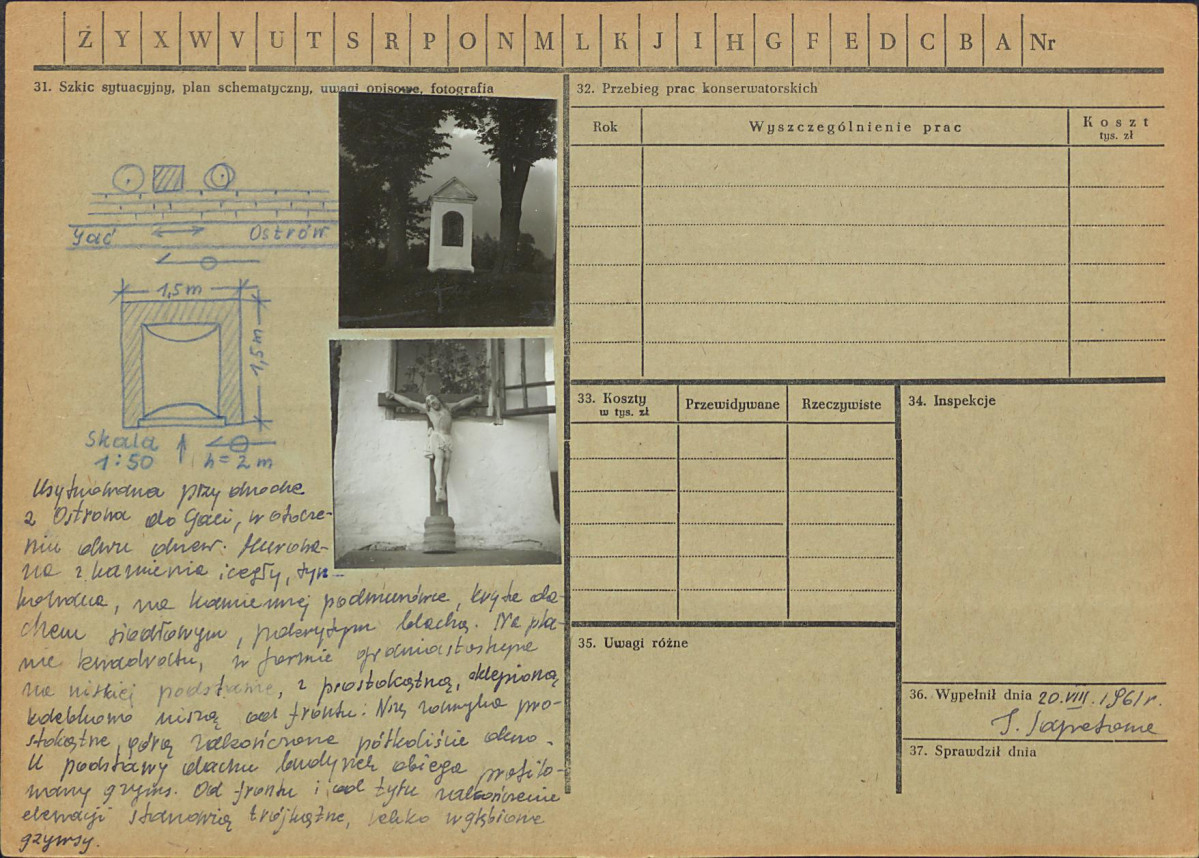 Ż Y X W V U T S R P O N M L K J I H G F E D C B A Nr
31. Szkic sytuacyjny, plan schematyczny, uwagi opisowe, fotografia
Gać Ostrów
1,5 m
1,5 m
Skala
1:50 h = 2 m
Usytuowana przy drodze
z Ostrowa do Gaci, w otocze-
niu dwu drzew. Murowa-
na z kamienia i cegły, tyn-
kowana, na kamiennej podmurówce, kryta da-
chem siodłowym, pokrytym blachą. Na pla-
nie kwadratu, w formie graniastosłupa
na niskiej podstawie, z prostokątną, sklepioną
kolebkowo niszą od frontu. Niszę zamyka pro-
stokątne, górą zakończone półkoliście okno.
U podstawy dachu budynek obiega profilo-
wany gzyms. Od frontu i od tyłu zakończenie
elewacji stanowią trójkątne, lekko wgłębione
gzymsy.
32. Przebieg prac konserwatorskich
Rok Wyszczególnienie prac Koszt
tys. zł
33. Koszty
w tys. zł
Przewidywane Rzeczywiste
34. Inspekcje
35. Uwagi różne
36. Wypełnił dnia 20.VIII.1961r.
37. Sprawdził dnia